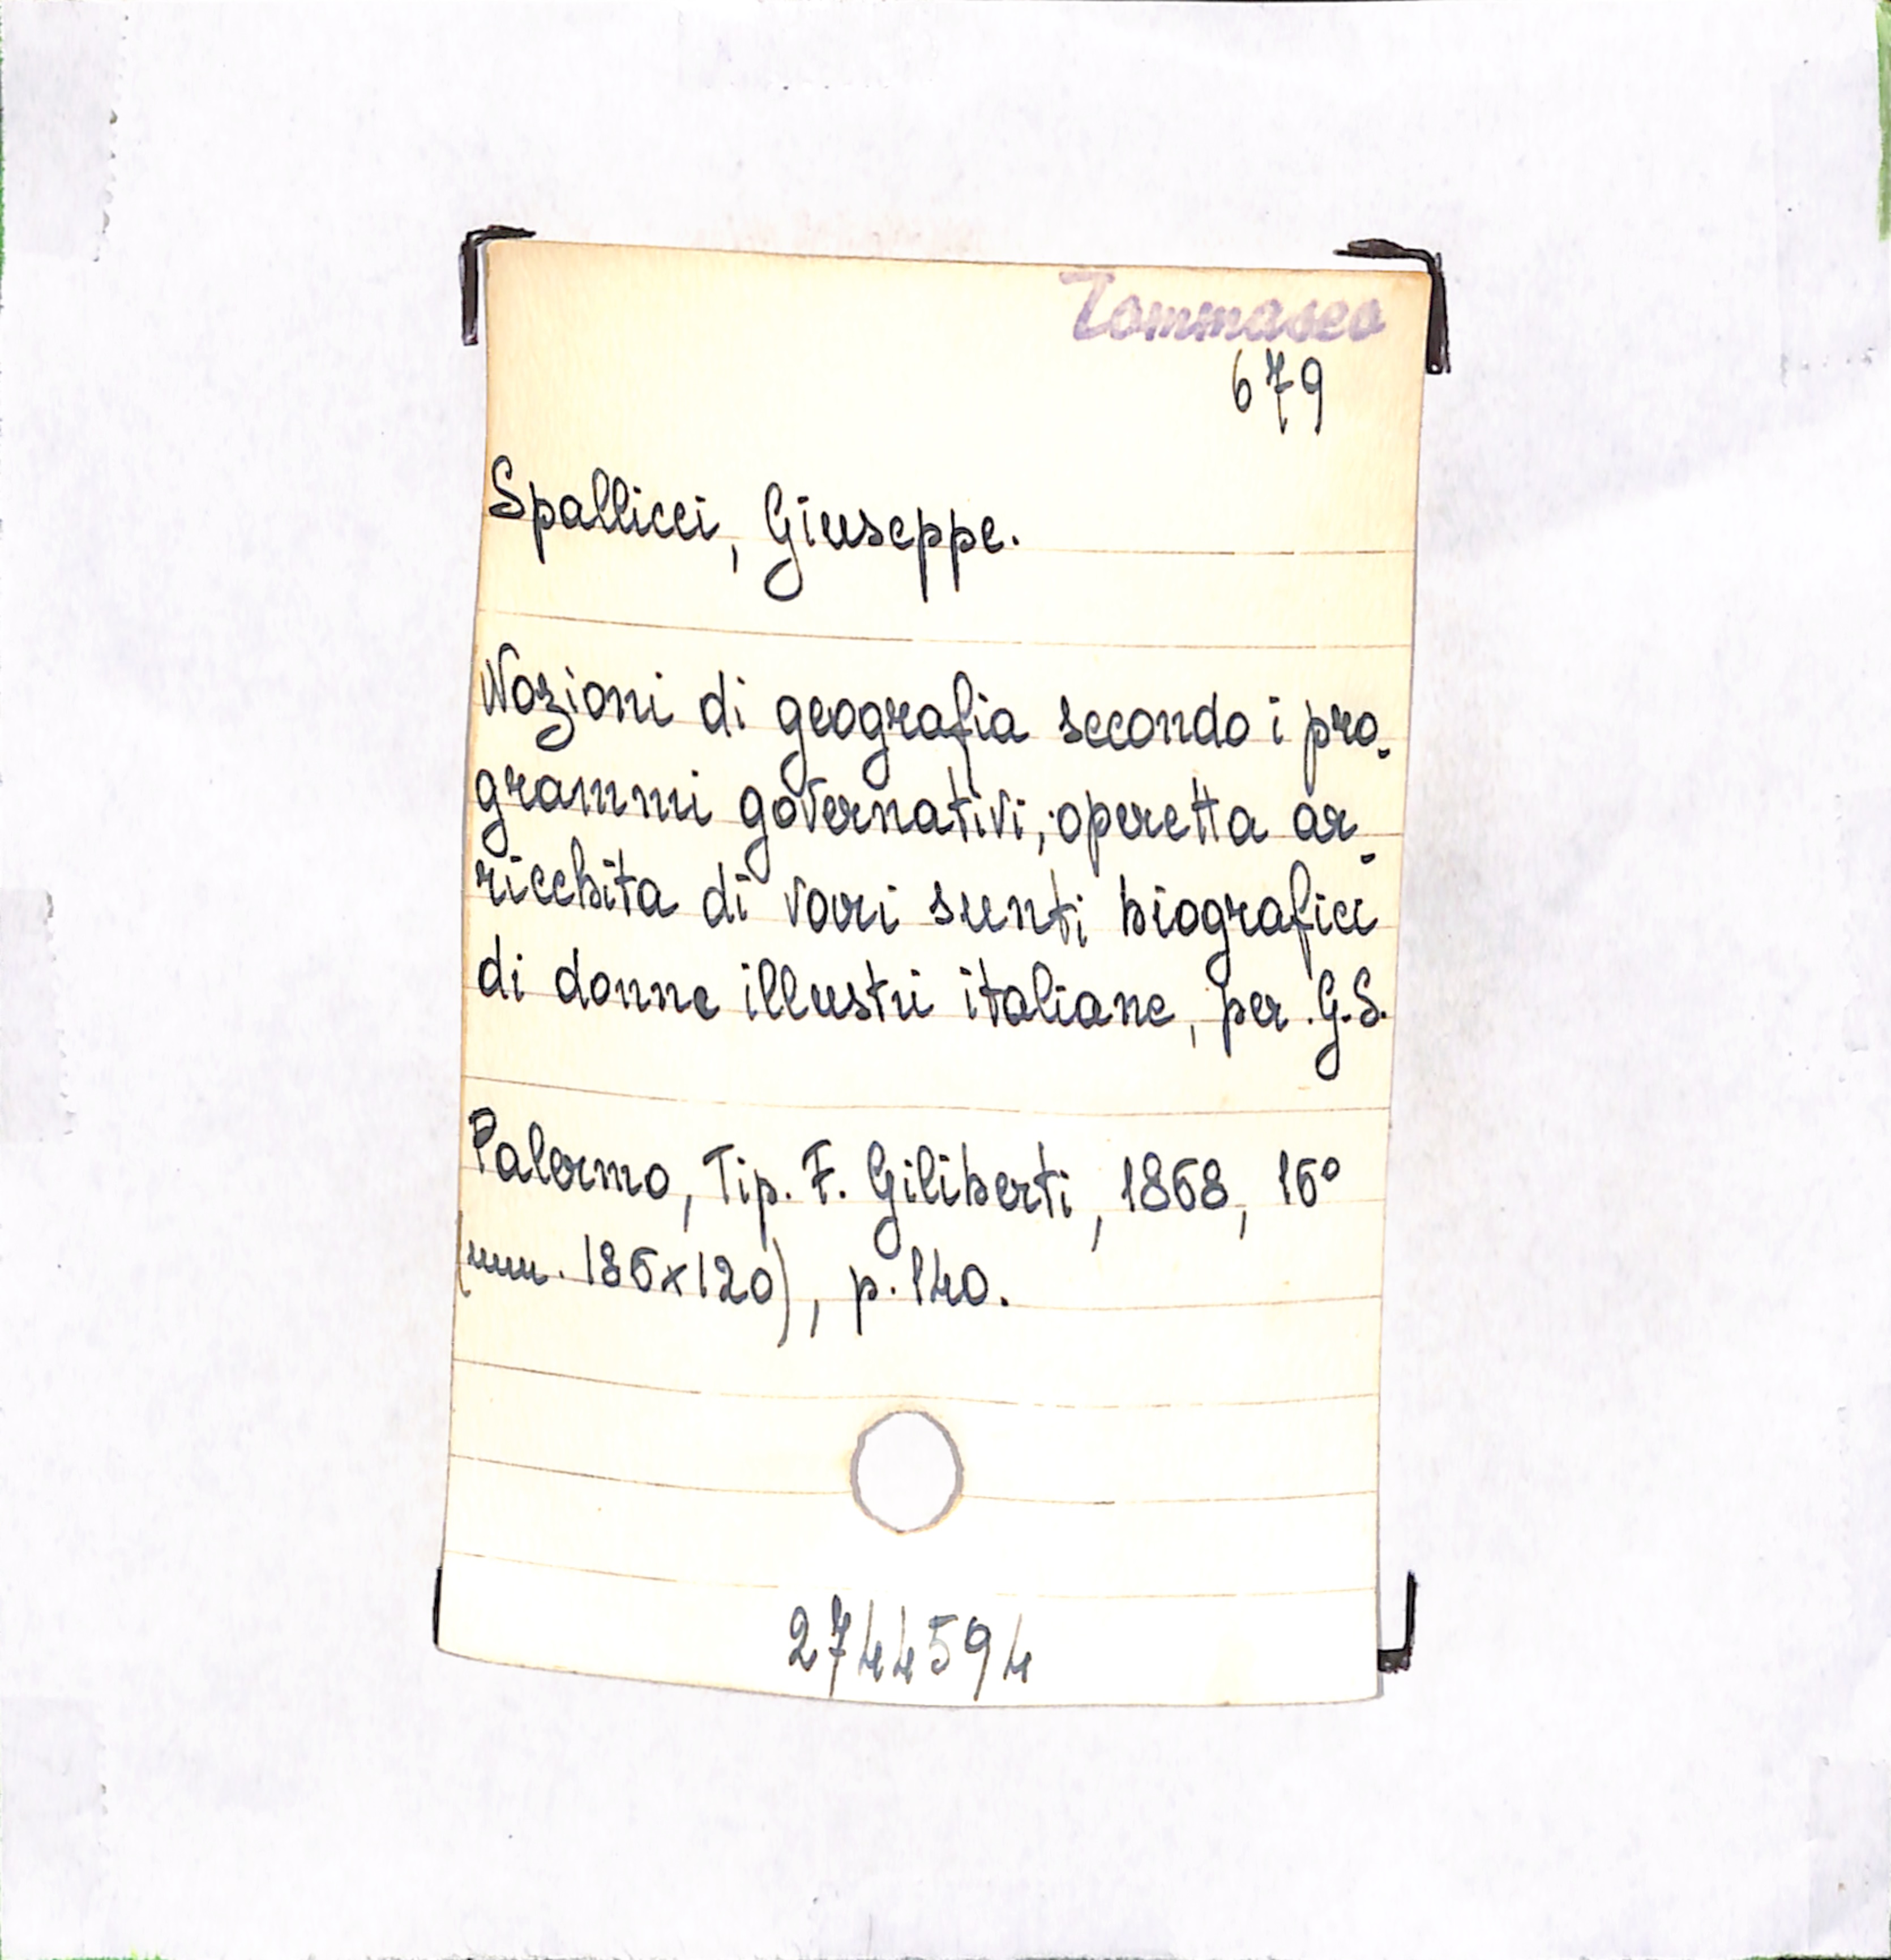 Tommaseo
679
Spallicci, Giuseppe.
Nozioni di geografia secondo i pro-
grammi governativi, operetta ar-
ricchita di vari sunti biografici
di donne illustri italiane, per G.S.
Palermo, Tip. F. Giliberti, 1868, 16°
(mm. 186x120), p. 140.
2744594